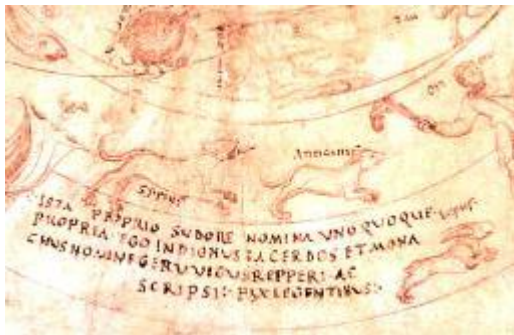 ANTICANIS
LEPUS
ISTA PROPRIO SUDORE NOMINA UNOQUOQUE
PROPRIA EGO INDIGNUS SACERDOS ET MONA
CHUS NOMINE GERUVIGUS REPPERI AC
SCRIPSI: PAX LEGENTIBUS: